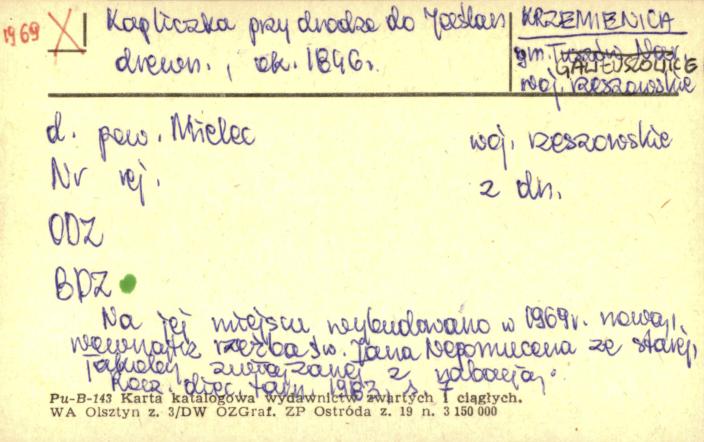 1969 Kapliczka przy drodze do Jaślan
drewn., ok. 1896r.
KRZEMIENICA
gm. Tuszów Nar.
GAWŁUSZOWICE
woj. rzeszowskie
d. pow. Mielec woj. rzeszowskie
Nr rej. z dn.
ODZ
BDZ
Na jej miejscu wybudowano w 1969r. nową,
wewnątrz rzeźba św. Jana Nepomucena ze starej,
zwiążanej z
Rocz. diec. tarn. s. 7
Pu-B-143 Karta katalogowa wydawnictw zwartych i ciągłych.
WA Olsztyn z. 3/DW OZGraf. ZP Ostróda z. 19 n. 3 150 000